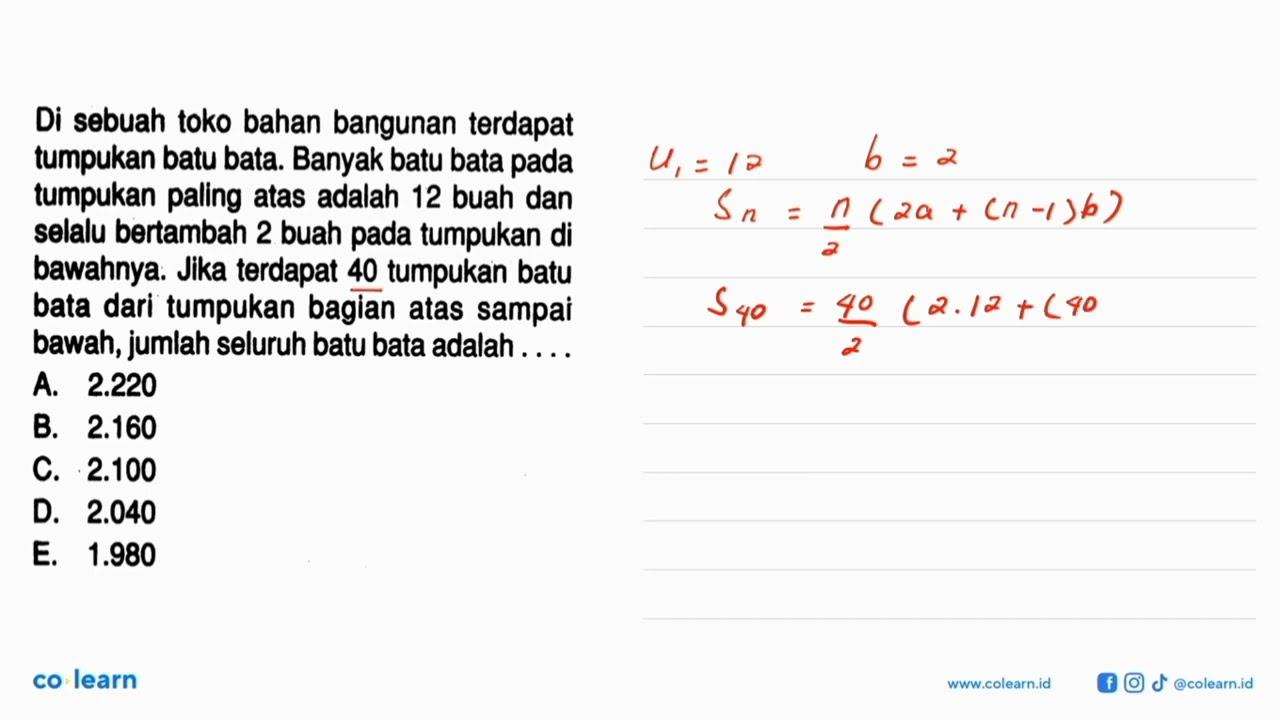 Di sebuah toko bahan bangunan terdapat
tumpukan batu bata. Banyak batu bata pada
tumpukan paling atas adalah 12 buah dan
selalu bertambah 2 buah pada tumpukan di
bawahnya. Jika terdapat 40 tumpukan batu
bata dari tumpukan bagian atas sampai
bawah, jumlah seluruh batu bata adalah . . . .
A. 2.220
B. 2.160
C. 2.100
D. 2.040
E. 1.980
U₁ = 12 b = 2
Sn = n/2 (2a + (n - 1) b)
S40 = 40/2 (2 . 12 + (40
co learn
www.colearn.id
@colearn.id